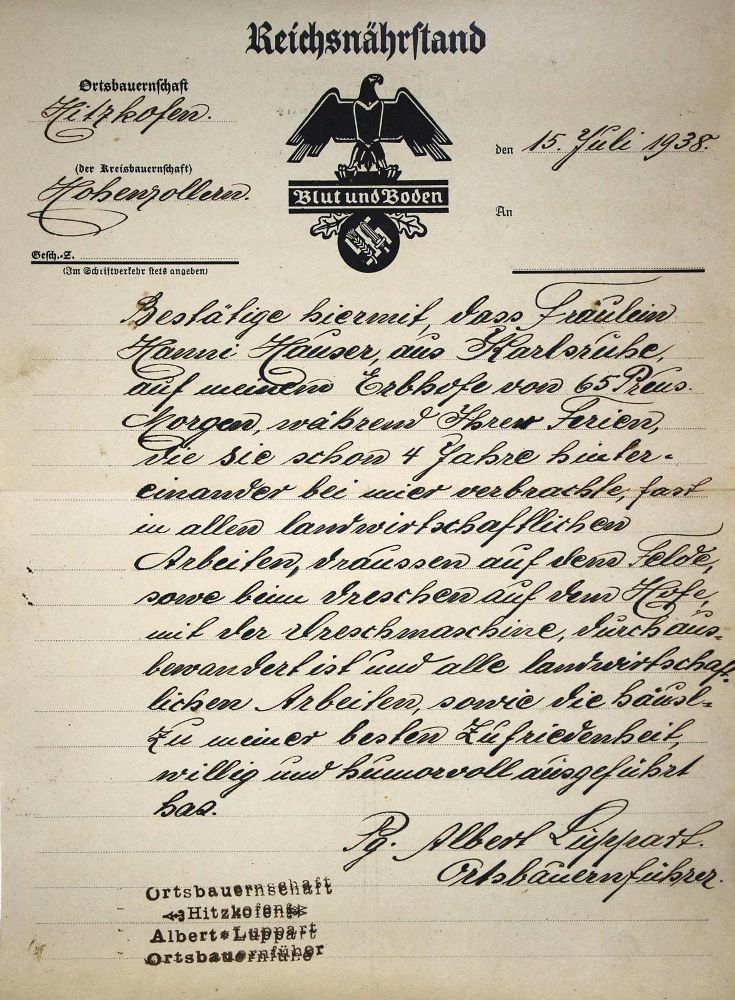 Reichsnährstand
Ortsbauernschaft
Hitzkofen.
(der Kreisbauernschaft)
Hohenzollern.
Gesch.-Z.
(Im Schriftverkehr stets angeben)
Blut und Boden
den 15. Juli 1938.
An
Bestätige hiermit, dass Fräulein
Hanni Hauser, aus Karlsruhe,
auf meinem Erbhofe von 65 Preus.
Morgen, während Ihren Ferien,
die Sie schon 4 Jahre hinter-
einander bei mier verbrachte, fast
in allen landwirtschaftlichen
Arbeiten, draussen auf dem Felde,
sowe beim dreschen auf dem Hofe,
mit der Dreschmaschine, durchaus-
bewandert ist und alle landwirtschaft-
lichen Arbeiten, sowie die häusl-
zu meiner besten Zufriedenheit,
willig und humorvoll ausgeführt
has.
Pg. Albert Luppart.
Ortsbauernführer.
Ortsbauernschaft
Hitzkofen
Albert Luppart
Ortsbauernführer